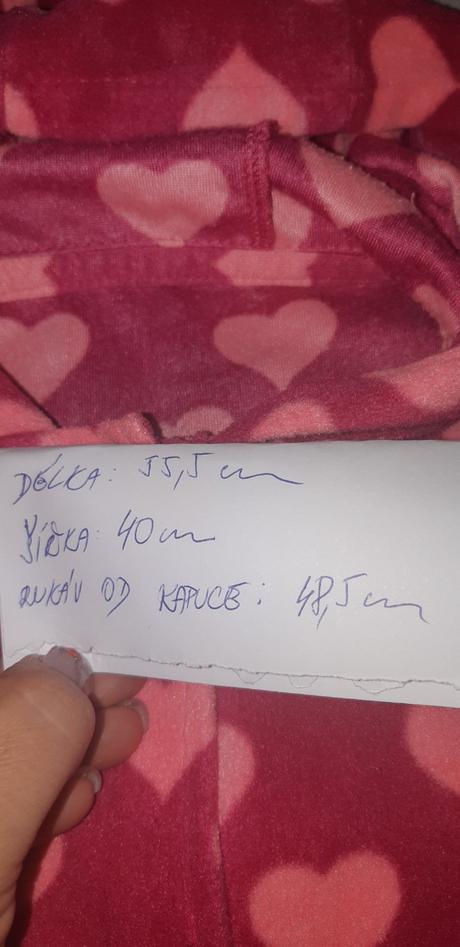 DÉLKA: 55,5 cm
ŠÍŘKA: 40 cm
RUKÁV OD KAPUCE: 48,5 cm